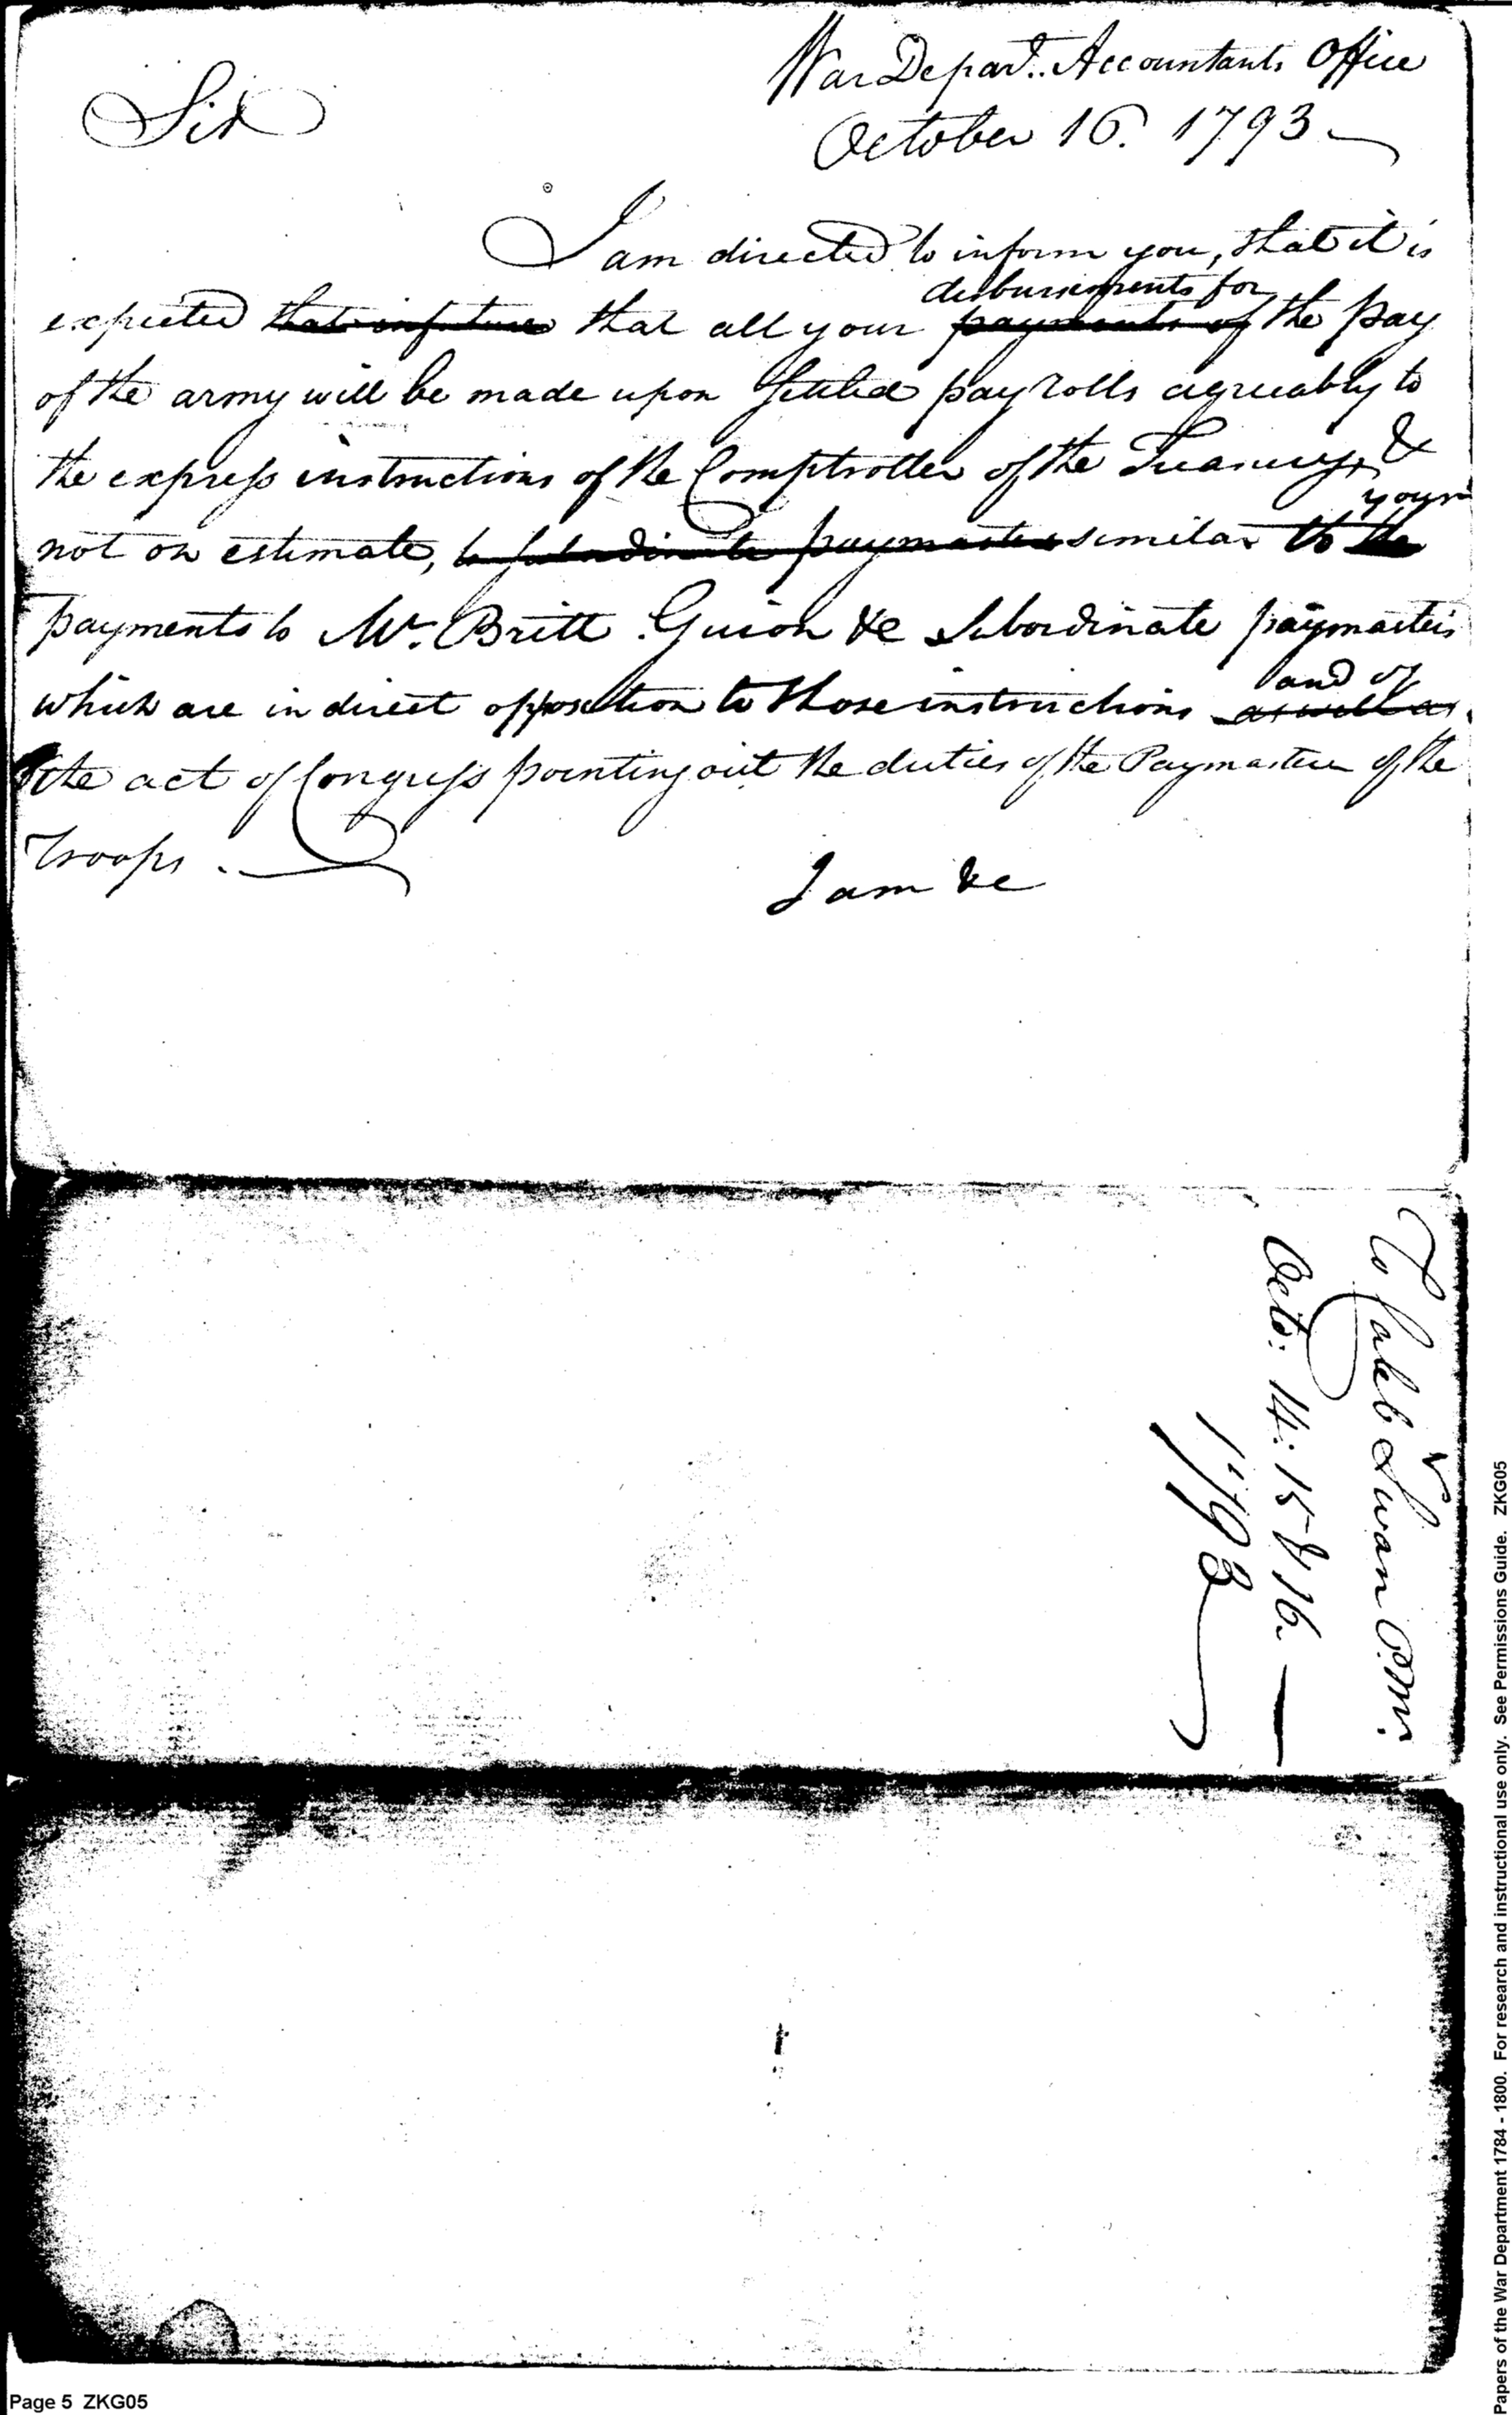 War Depart. Accountants Office
Sir
October 16. 1793
I am directed to inform you, that it is
disbursements for
expected that in future that all your payments of the pay
of the army will be made upon settled pay rolls agreeably to
the express instructions of the Comptroller of the Treasury &
your
not on estimate, to subordinate paymasters similar to the
payments to Mr. Britt Guion &c subordinate paymasters
and of
which are in direct opposition to those instructions as well as
the act of Congress pointing out the duties of the Paymaster of the
Troops.
I am &c
To Caleb Swan P.M.
Octo: 14: 15 & 16.
1793
Page 5 ZKG05
Papers of the War Department 1784 - 1800. For research and instructional use only. See Permissions Guide. ZKG05